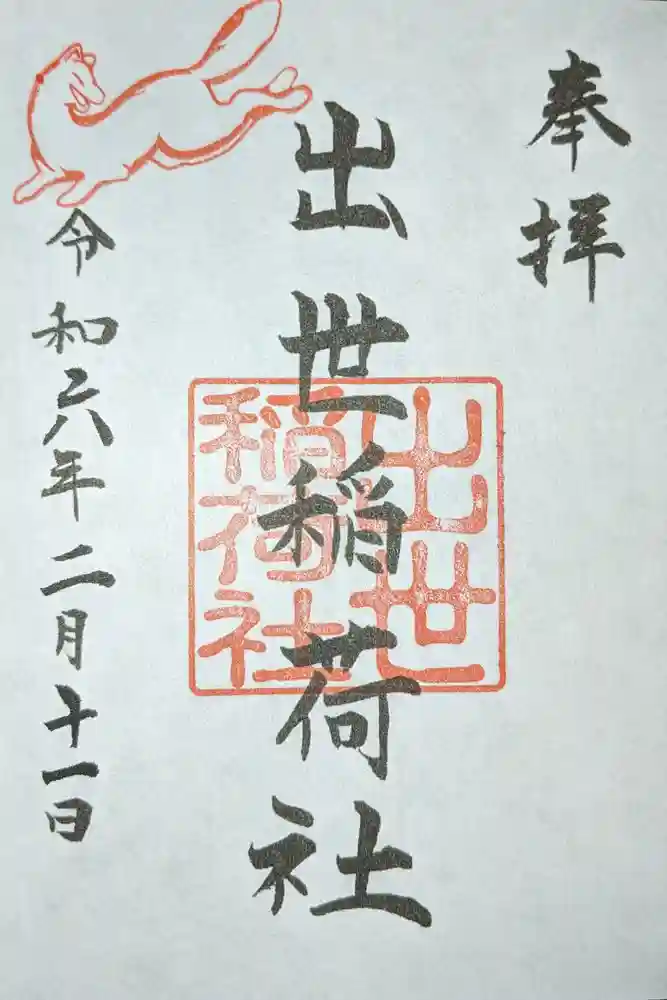 奉拝
出世稲荷社
出世
稲荷社
令和六年二月十一日